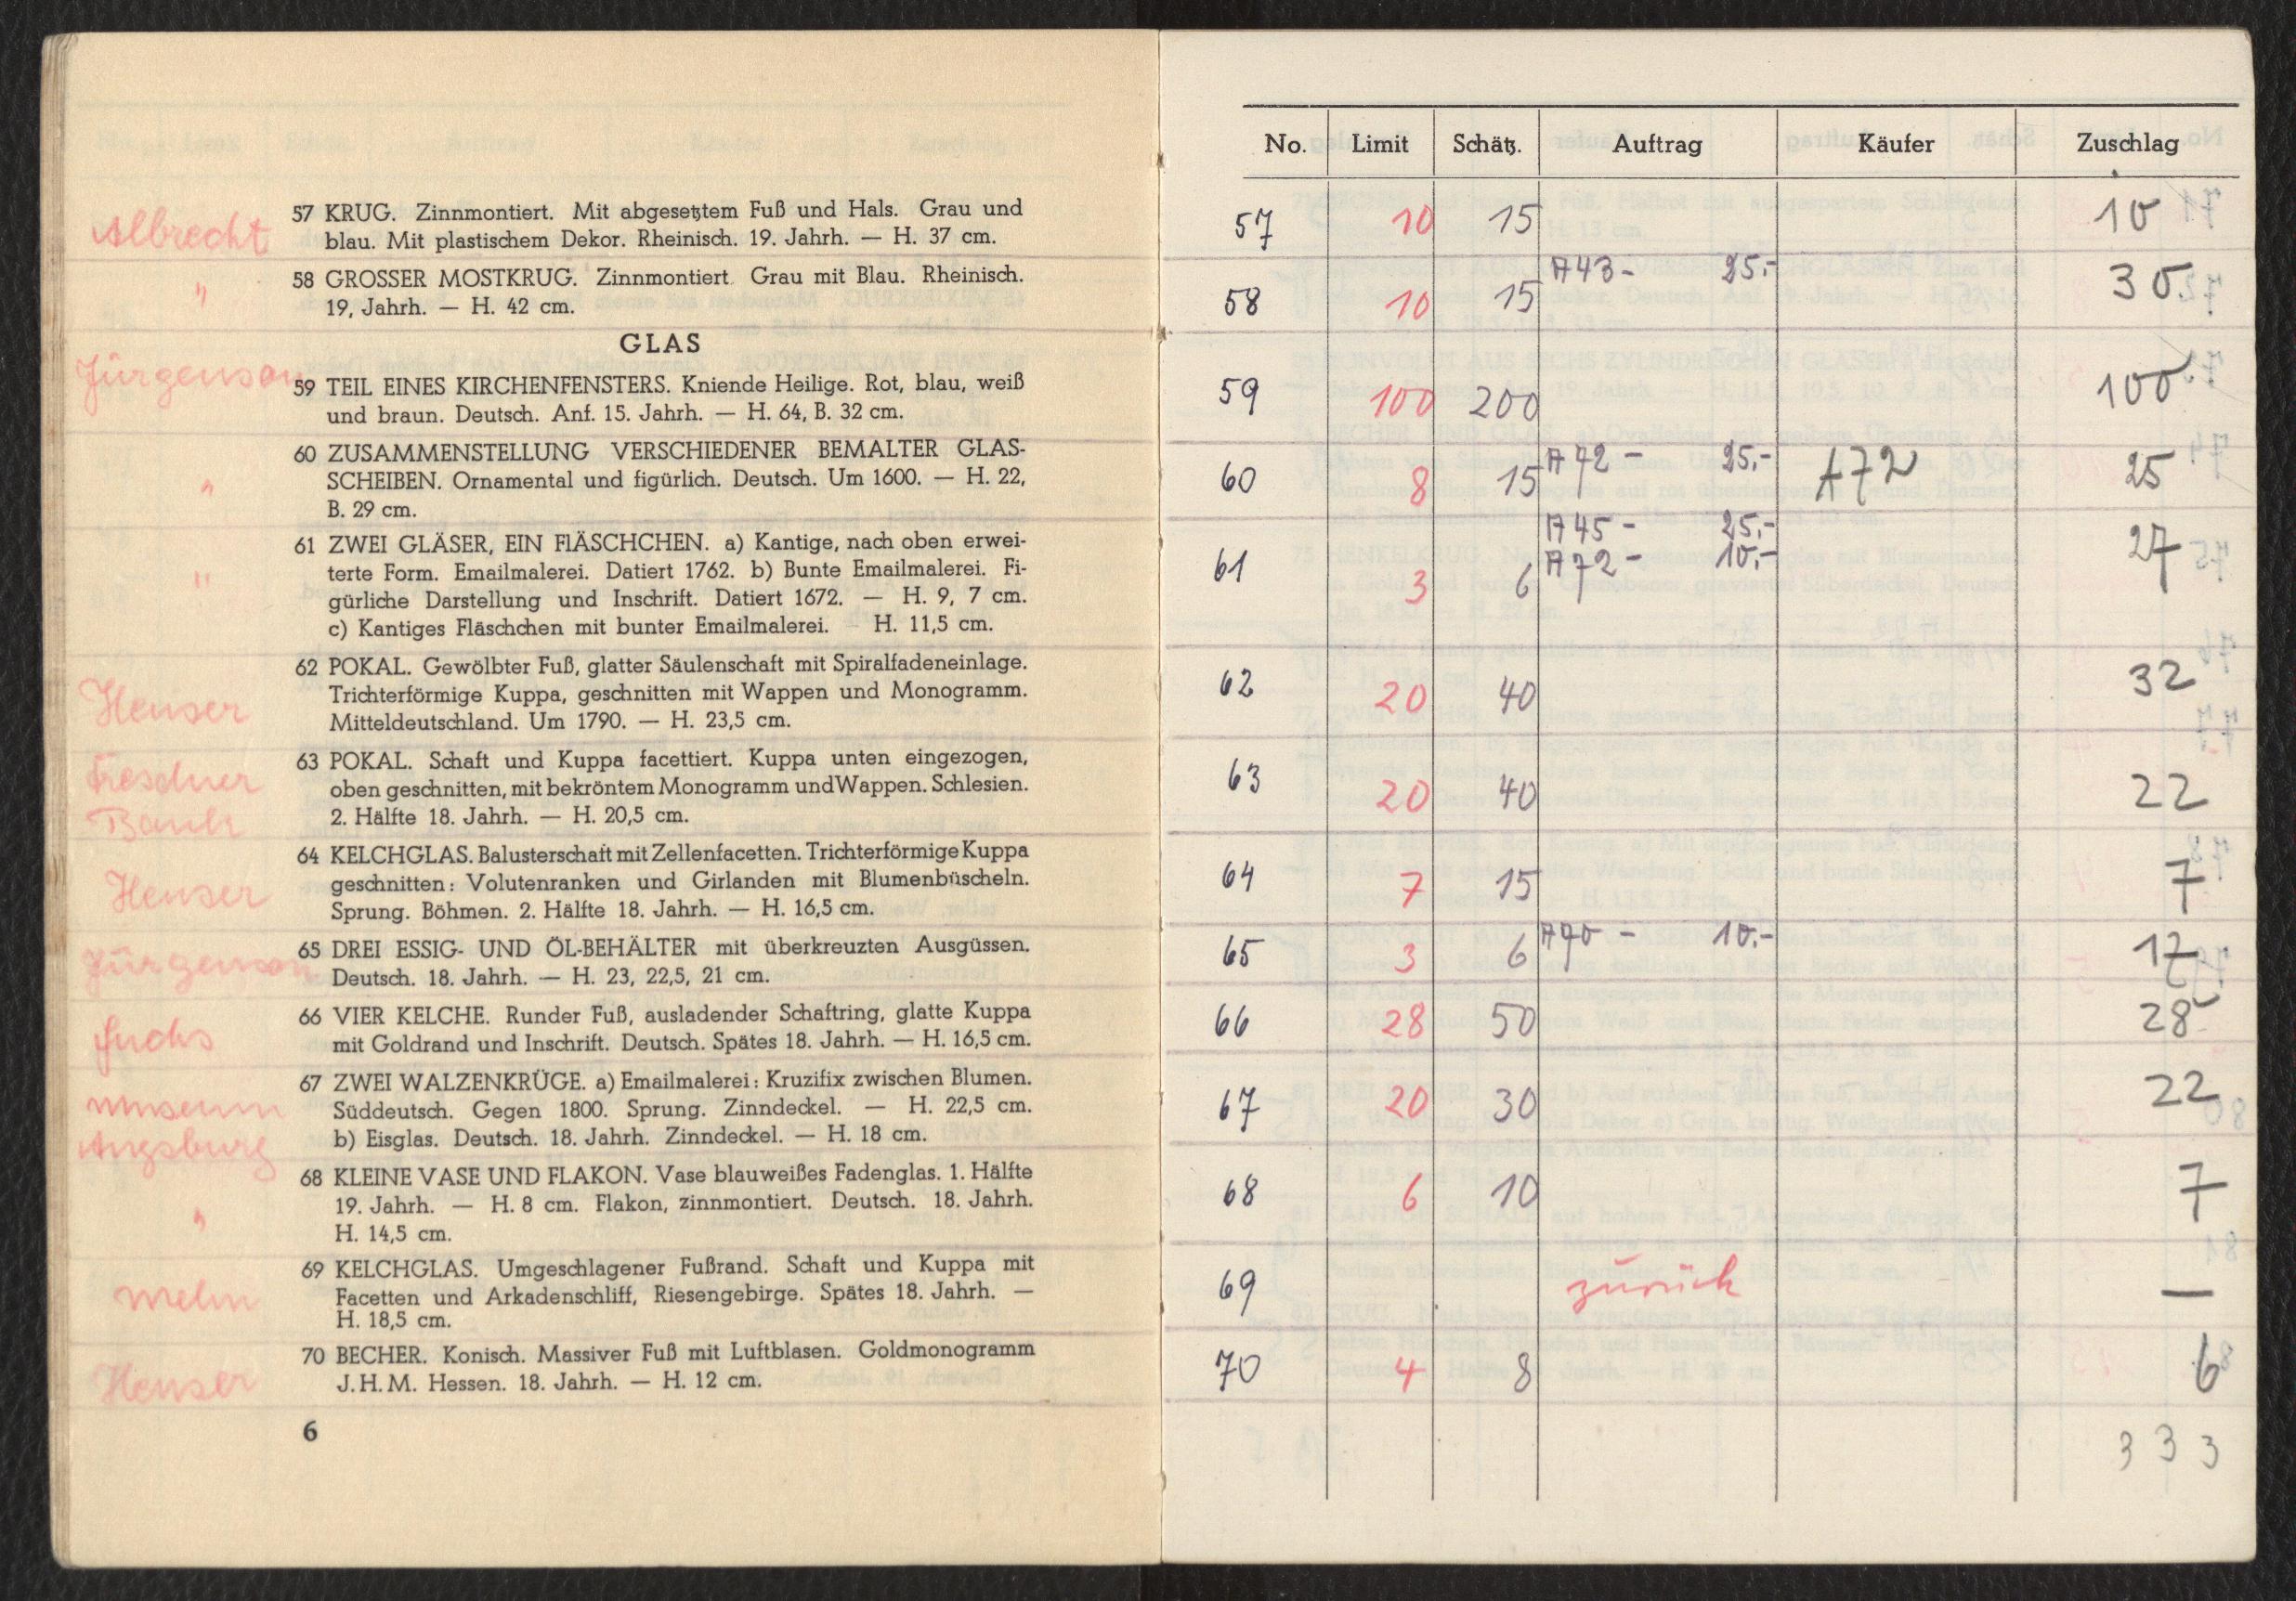 Albrecht
57 KRUG. Zinnmontiert. Mit abgesetztem Fuß und Hals. Grau und
blau. Mit plastischem Dekor. Rheinisch. 19. Jahrh. — H. 37 cm.
"
58 GROSSER MOSTKRUG. Zinnmontiert. Grau mit Blau. Rheinisch.
19, Jahrh. — H. 42 cm.
GLAS
Jürgenson
59 TEIL EINES KIRCHENFENSTERS. Kniende Heilige. Rot, blau, weiß
und braun. Deutsch. Anf. 15. Jahrh. — H. 64, B. 32 cm.
"
60 ZUSAMMENSTELLUNG VERSCHIEDENER BEMALTER GLAS-
SCHEIBEN. Ornamental und figürlich. Deutsch. Um 1600. — H. 22,
B. 29 cm.
"
61 ZWEI GLÄSER, EIN FLÄSCHCHEN. a) Kantige, nach oben erwei-
terte Form. Emailmalerei. Datiert 1762. b) Bunte Emailmalerei. Fi-
gürliche Darstellung und Inschrift. Datiert 1672. — H. 9, 7 cm.
c) Kantiges Fläschchen mit bunter Emailmalerei. — H. 11,5 cm.
Heuser
62 POKAL. Gewölbter Fuß, glatter Säulenschaft mit Spiralfadeneinlage.
Trichterförmige Kuppa, geschnitten mit Wappen und Monogramm.
Mitteldeutschland. Um 1790. — H. 23,5 cm.
Bank
63 POKAL. Schaft und Kuppa facettiert. Kuppa unten eingezogen,
oben geschnitten, mit bekröntem Monogramm und Wappen. Schlesien.
2. Hälfte 18. Jahrh. — H. 20,5 cm.
Heuser
64 KELCHGLAS. Balusterschaft mit Zellenfacetten. Trichterförmige Kuppa
geschnitten: Volutenranken und Girlanden mit Blumenbüscheln.
Sprung. Böhmen. 2. Hälfte 18. Jahrh. — H. 16,5 cm.
Jürgenson
65 DREI ESSIG- UND ÖL-BEHÄLTER mit überkreuzten Ausgüssen.
Deutsch. 18. Jahrh. — H. 23, 22,5, 21 cm.
Fuchs
66 VIER KELCHE. Runder Fuß, ausladender Schaftring, glatte Kuppa
mit Goldrand und Inschrift. Deutsch. Spätes 18. Jahrh. — H. 16,5 cm.
Museum
Augsburg
67 ZWEI WALZENKRÜGE. a) Emailmalerei: Kruzifix zwischen Blumen.
Süddeutsch. Gegen 1800. Sprung. Zinndeckel. — H. 22,5 cm.
b) Eisglas. Deutsch. 18. Jahrh. Zinndeckel. — H. 18 cm.
"
68 KLEINE VASE UND FLAKON. Vase blauweißes Fadenglas. 1. Hälfte
19. Jahrh. — H. 8 cm. Flakon, zinnmontiert. Deutsch. 18. Jahrh.
H. 14,5 cm.
69 KELCHGLAS. Umgeschlagener Fußrand. Schaft und Kuppa mit
Facetten und Arkadenschliff, Riesengebirge. Spätes 18. Jahrh. —
H. 18,5 cm.
Heuser
70 BECHER. Konisch. Massiver Fuß mit Luftblasen. Goldmonogramm
J. H. M. Hessen. 18. Jahrh. — H. 12 cm.
6
No. Limit Schätz. Auftrag Käufer Zuschlag
57 10 15 10
58 10 15 A43 - 25.- 30
59 100 200 100
60 8 15 A72 - 25.- A72 25
61 3 6 A45 - 25.- 27
A72 - 10.-
62 20 40 32
63 20 40 22
64 7 15 7
65 3 6 A70 - 10.- 17
66 28 50 28
67 20 30 22
68 6 10 7
69 zurück —
70 4 8 6
333